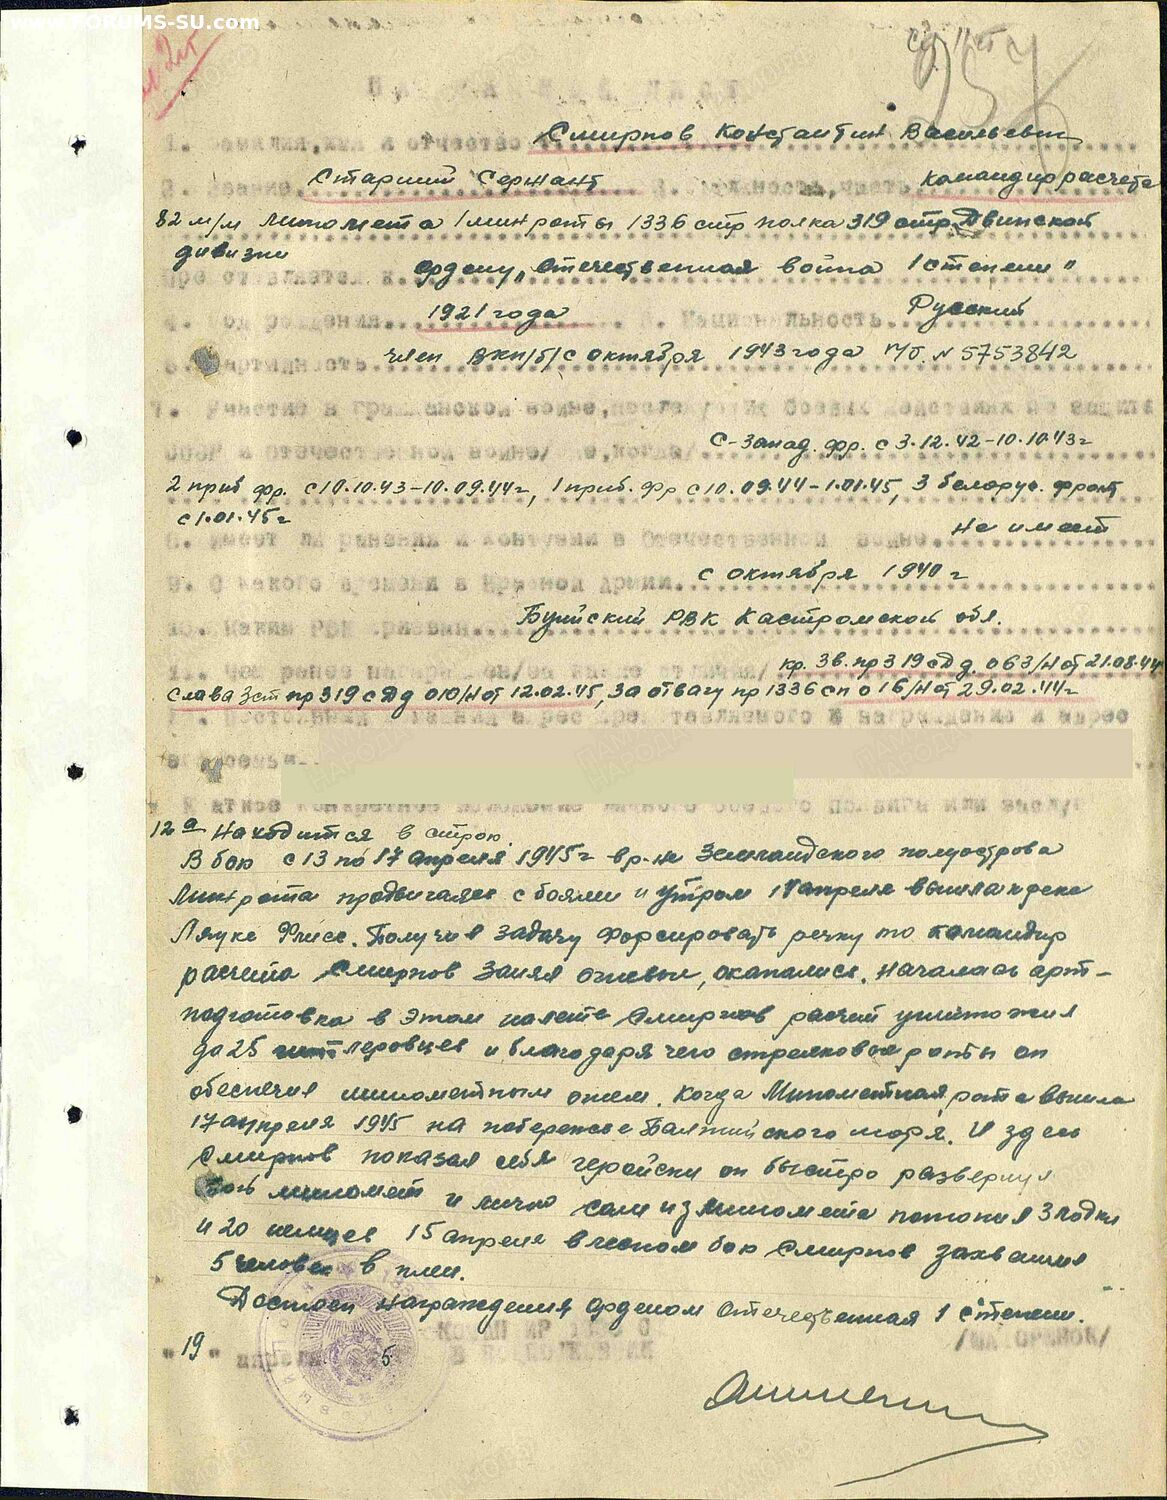 www.FORUMS-SU.com
НАГРАДНОЙ ЛИСТ
1. Фамилия, имя и отчество Смирнов Константин Васильевич
2. Звание Старший Сержант 3. Должность, часть командир расчета
82 м/м миномета 1 мин роты 1336 стр полка 319 стр. Двинской
дивизии
Представляется к ордену "Отечественная война 1 степени"
4. Год рождения 1921 года 5. Национальность Русский
6. Партийность член ВКП/б/ с октября 1943 года п/б. N 5753842
7. Участие в гражданской войне, последующих боевых действиях по защите
СССР и отечественной войне/где, когда/ С-Запад. фр. с 3.12.42-10.10.43г
2 приб фр. с 10.10.43-10.09.44г, 1 приб. фр с 10.09.44-1.01.45, 3 белорус. фронт
с 1.01.45г
8. Имеет ли ранения и контузии в Отечественной войне Не имеет
9. С какого времени в Красной Армии с октября 1940 г
10. Каким РВК призван Буйский РВК Кастромской обл.
11. Чем ранее награжден/за какие отличия/ кр. Зв. пр 319 сд д. 063/н от 21.08.44
Слава 3 ст пр 319 сд д 010/н от 12.02.45, За отвагу пр 1336 сп 016/н от 29.02.44г
12. Постоянный домашний адрес представляемого к награждению и адрес
его семьи
Краткое конкретное изложение личного боевого подвига или заслуг
12а Находится в строю.
В бою с 13 по 17 апреля 1945г в р-не Земландского полуострова
Минрота продвигаясь с боями и утром апреля вышла к реке
Ляуке Флисс. Получив задачу форсировать речку то командир
расчета Смирнов занял огневые, окапались. Началась арт-
подготовка в этом налете Смирнов расчет уничтожил
до 25 гитлеровцев и благодаря чего стрелковые роты он
обеспечил минометным огнем. Когда Минометная рота вышла
17 апреля 1945 на побережье Балтийского моря. И здесь
Смирнов показал себя геройски он быстро развернул
свой миномет и лично сам из миномета потопил 3 лодки
и 20 немцев 15 апреля в лесном бою Смирнов захватил
5 человек в плен.
Достоен награждения орденом Отечественная 1 степени.
КОМАНДИР 1336 СП
"19" апреля 5 ПОДПОЛКОВНИК